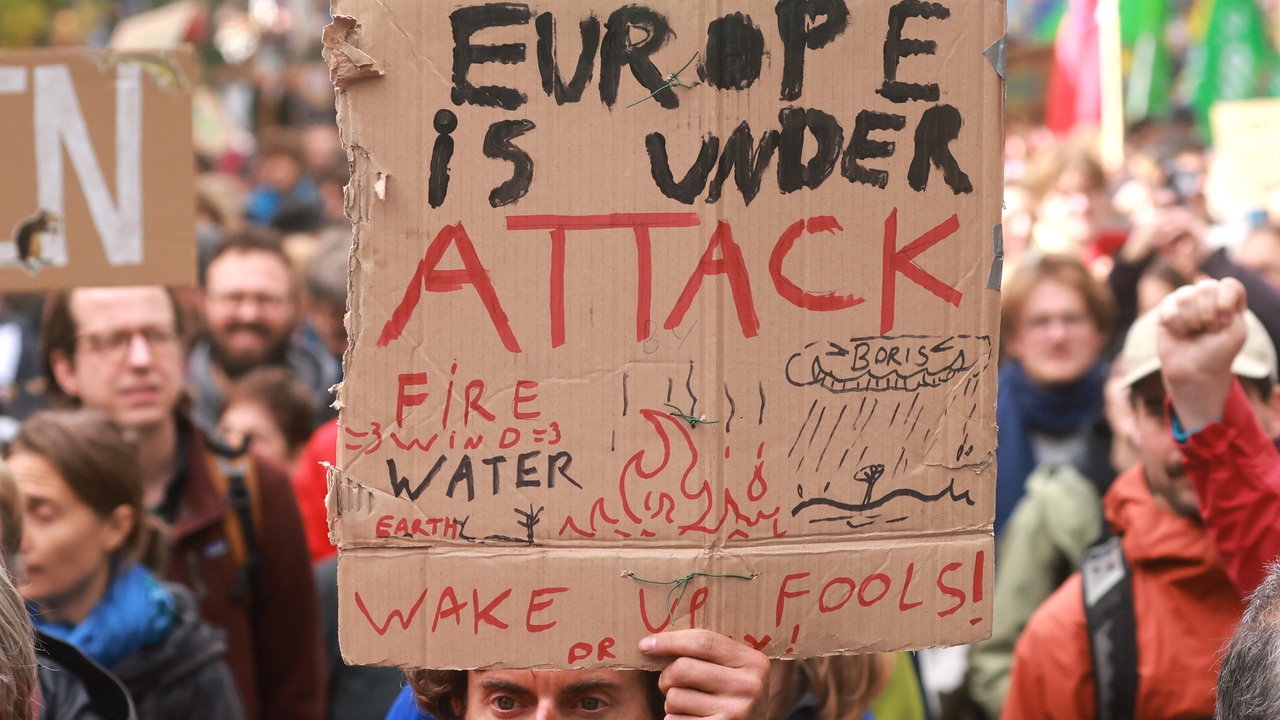 EUROPE
is UNDER
ATTACK
FiRE
WiND
WATER
EARTH
BORIS
WAKE UP FOOLS!
OR
N